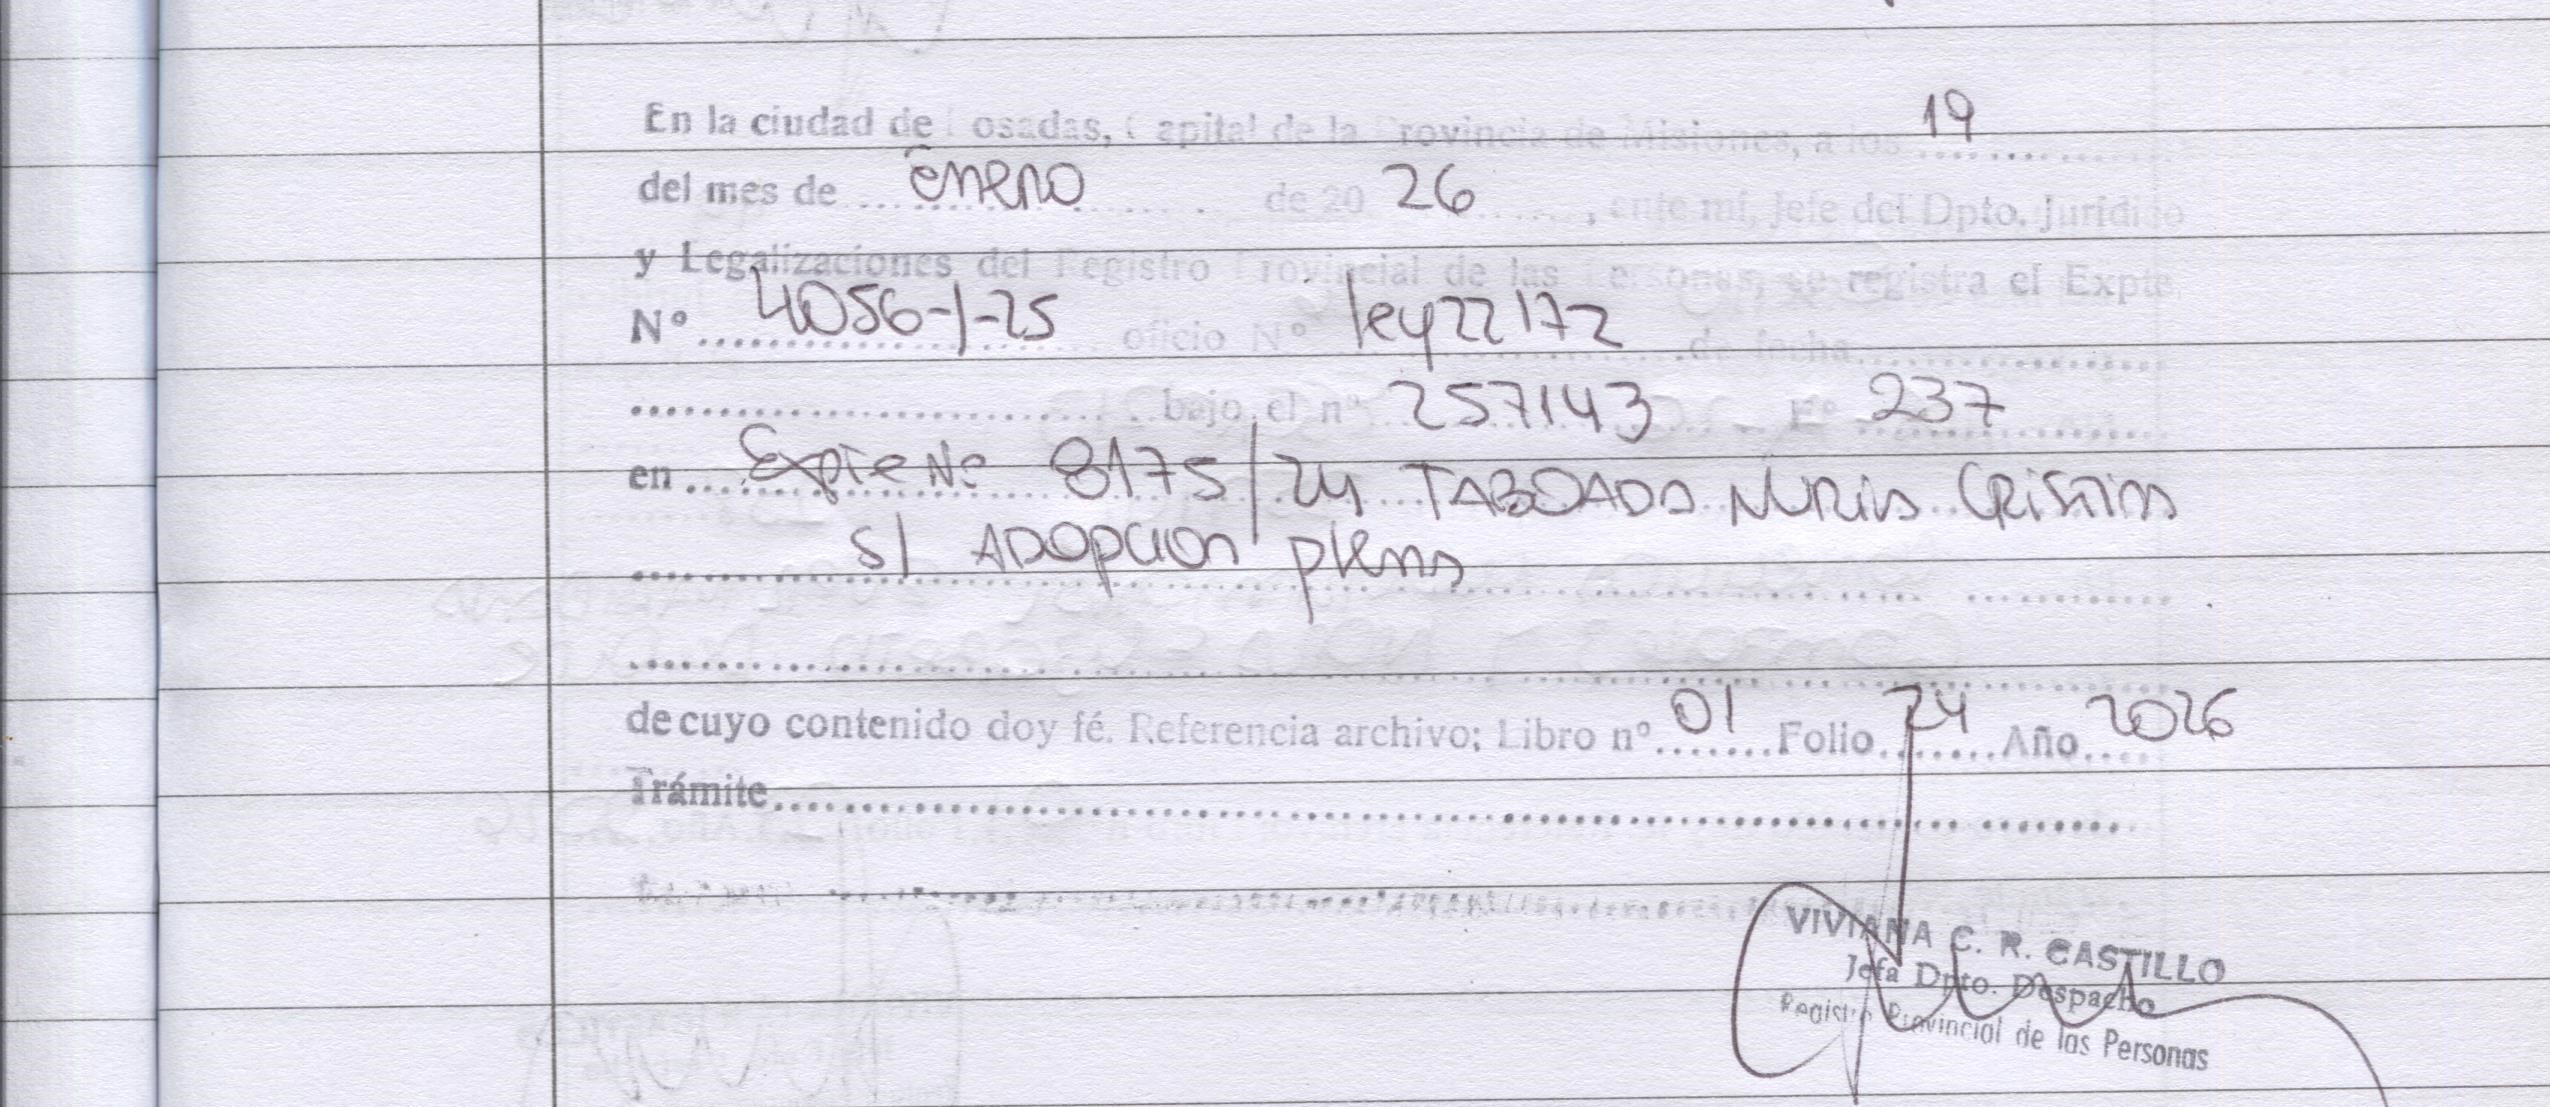 En la ciudad de Posadas, Capital de la Provincia de Misiones, a los 19
del mes de enero de 2026, ante mí, Jefe del Dpto. Jurídico
y Legalizaciones del Registro Provincial de las Personas, se registra el Expte.
Nº 4056-1-25 oficio Nº ley 22172 de fecha
bajo el nº 257143 Fº 237
en Expte Nº 8175/24 TABOADA NURIA CRISTINA
s/ ADOPCION plena
de cuyo contenido doy fé. Referencia archivo: Libro nº 01 Folio 24 Año 2026
Trámite
VIVIANA C. R. CASTILLO
Jefa Dpto. Despacho
Registro Provincial de las Personas